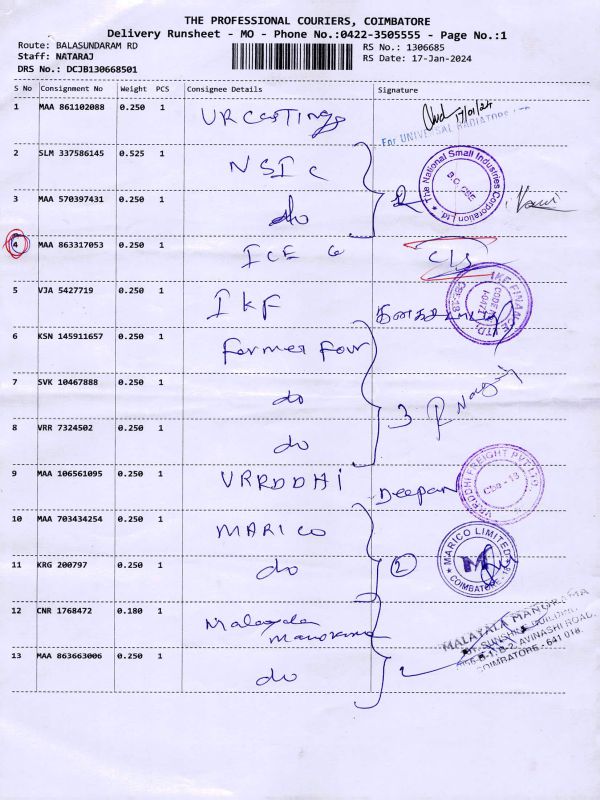 THE PROFESSIONAL COURIERS, COIMBATORE
Delivery Runsheet - MO - Phone No.:0422-3505555 - Page No.:1
Route: BALASUNDARAM RD
Staff: NATARAJ
DRS No.: DCJB130668501
RS No.: 1306685
RS Date: 17-Jan-2024
S No Consignment No Weight PCS Consignee Details Signature
1 MAA 861102088 0.250 1 VR Castings 17/01/24
For UNIVERSAL RADIATORS
2 SLM 337586145 0.525 1 NSIC
The National Small Industries Corporation Ltd
3 MAA 570397431 0.250 1 do 2
4 MAA 863317053 0.250 1 ICE 6
5 VJA 5427719 0.250 1 IKF
IKF FINANCE LTD.
6 KSN 145911657 0.250 1 Former Four
7 SVK 10467888 0.250 1 do 3
8 VRR 7324502 0.250 1 do
9 MAA 106561095 0.250 1 VRRDDHI Deepan
VRRDDHI FREIGHT PVT LTD
10 MAA 703434254 0.250 1 MARICO
MARICO LIMITED
M
COIMBATORE
11 KRG 200797 0.250 1 do 2
12 CNR 1768472 0.180 1 Malayala
Manorama
MALAYALA MANORAMA
SUNSHINE BUILDING
AVINASHI ROAD,
COIMBATORE - 641 018.
13 MAA 863663006 0.250 1 do